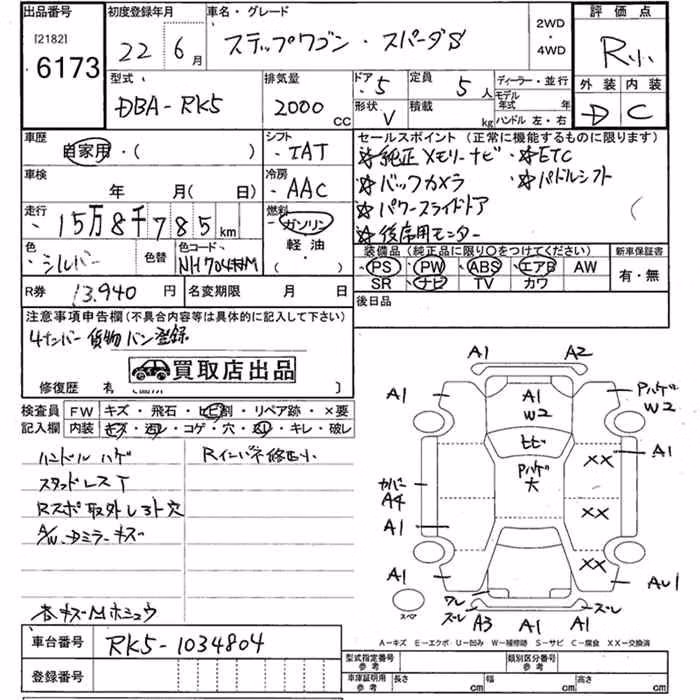 出品番号
[2182]
6173
初度登録年月
22年 6月
車名・グレード
ステップワゴン・スパーダS
2WD
・
4WD
評価点
R小
外装 内装
D C
型式
DBA-RK5
排気量
2000 cc
ドア 5
定員 5人
形状 V
積載 kg
ディーラー・並行
モデル年式 年
ハンドル 左・右
車歴
自家用・( )
シフト
IAT
車検
年 月(日)
冷房
AAC
走行
15万8千785km
燃料
ガソリン
軽油
( )
色
シルバー
色替
色コード
NH704M
R券 13,940円
名変期限 月 日
セールスポイント(正常に機能するものに限ります)
純正メモリーナビ・ETC
バックカメラ・パドルシフト
パワースライドドア
後席用モニター
装備品(純正品に限り○をつけてください)
新車保証書
PS PW ABS エアB AW
SR ナビ TV カワ
有・無
後日品
注意事項申告欄(不具合内容等は具体的に記入して下さい)
4ナンバー貨物バン登録
買取店出品
修復歴
検査員記入欄
FW キズ・飛石・ヒビ割・リペア跡・×要
内装 キズ・汚レ・コゲ・穴・スリ・キレ・破レ
ハンドルハゲ
Rインパネ修正小
スタッドレスT
Rスポ取外し3ト穴
A/W.Dミラーキズ
各キズ凹ホシュウ
車台番号 RK5-1034804
登録番号
A1 A2
A1
A1
W2
Pハゲ
W2
ヒビ
A1
Pハゲ
大
××
カバー
A4
××
A1
××
A1
AU1
ワレ
ズレ
A3 A1 A1
ズレ
スペア
A-キズ E-エクボ U-凹み W-補修跡 S-サビ C-腐食 XX-交換済
型式指定番号
参考
類別区分番号
参考
車庫証明用
参考
長さ cm
幅 cm
高さ cm